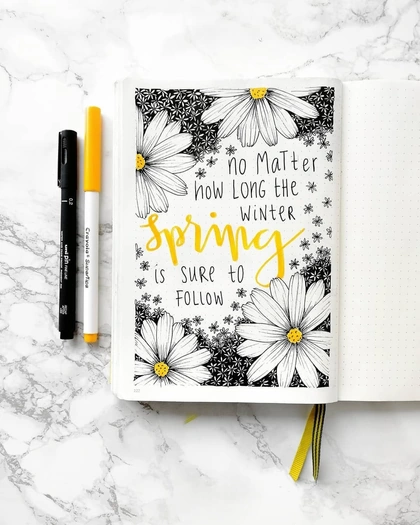 no Matter
how Long the
winter
Spring
is sure to
follow
0.2
uni PiN
Crayola SuperTips